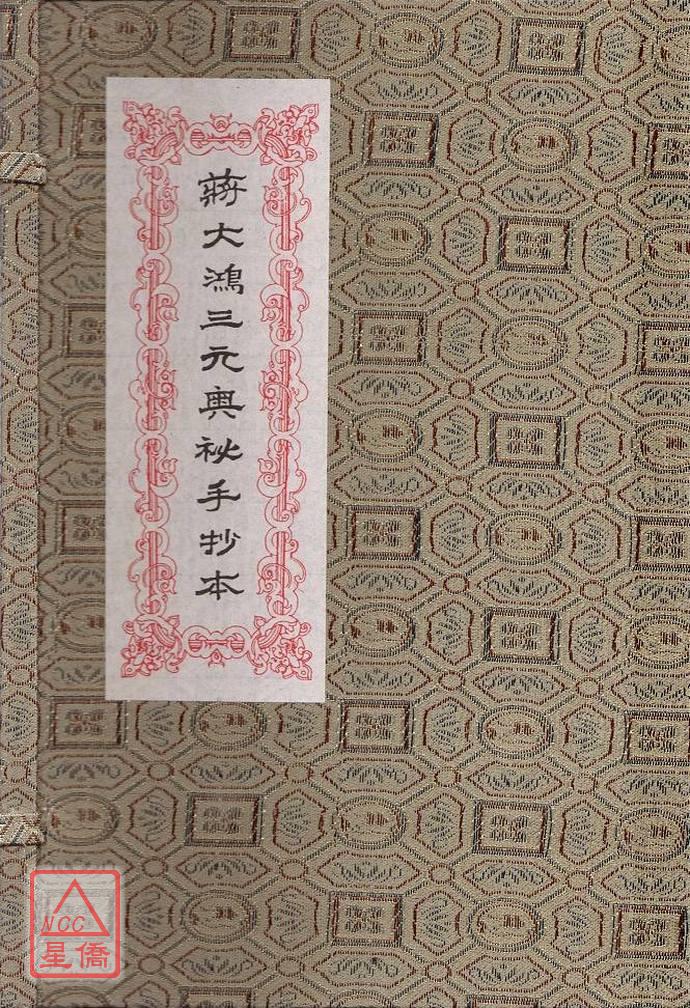 蔣大鴻三元奧祕手抄本
NCC
星僑